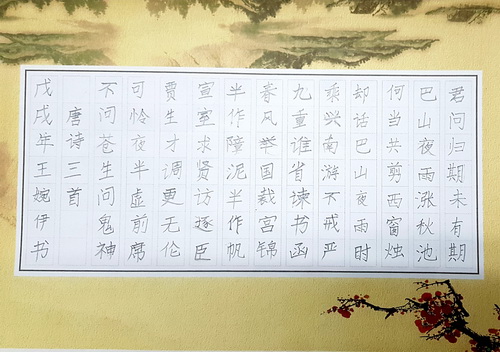 君问归期未有期
巴山夜雨涨秋池
何当共剪西窗烛
却话巴山夜雨时
乘兴南游不戒严
九重谁省谏书函
春风举国裁宫锦
半作障泥半作帆
宣室求贤访逐臣
贾生才调更无伦
可怜夜半虚前席
不问苍生问鬼神
唐诗三首
戊戌年王婉伊书